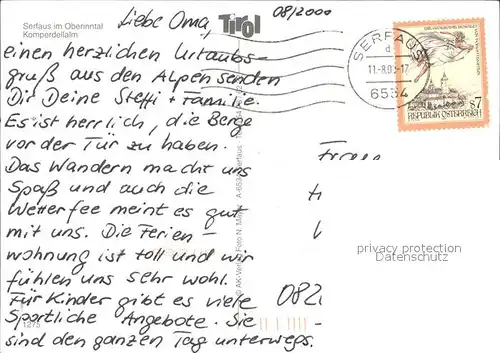 Serfaus im Oberinntal
Komperdellalm
Tirol
08/2000
Liebe Oma,
einen herzlichen Urlaubs-
gruß aus den Alpen senden
Dir Deine Steffi + Familie.
Es ist herrlich, die Berge
vor der Tür zu haben.
Das Wandern macht uns
Spaß und auch die
Wetterfee meint es gut
mit uns. Die Ferien-
wohnung ist toll und wir
fühlen uns sehr wohl.
Für Kinder gibt es viele
Sportliche Angebote. Sie
sind den ganzen Tag unterwegs.
1275
SERFAUS
d
6534
S7
REPUBLIK ÖSTERREICH
privacy protection
Datenschutz
082